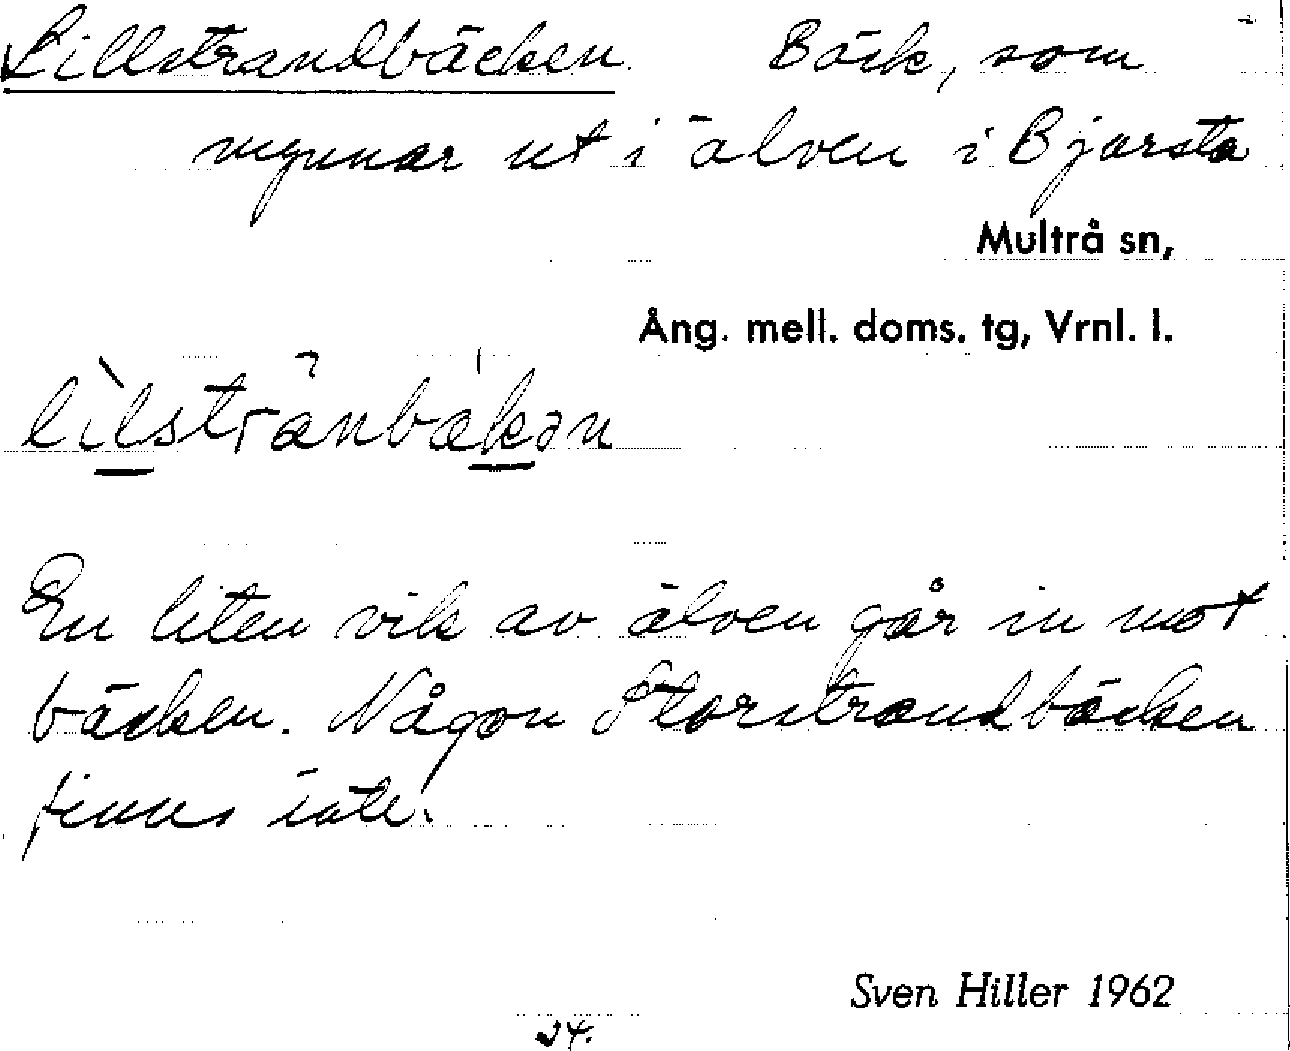 Lillstrandbäcken Bäck, som
mynnar ut i älven i Bjärsta
Multrå sn,
Ång. mell. doms. tg, Vrnl. l.
lìlstránbækən
En liten vik av älven går in mot
bäcken. Någon Storstrandbäcken
finns inte.
Sven Hiller 1962
24.